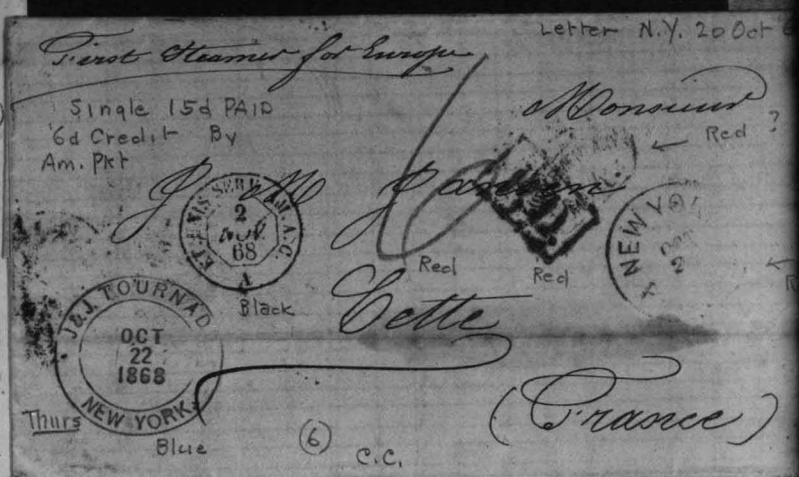 Letter N.Y. 20 Oct
First Steamer for Europe
Single 15¢ PAID
6¢ Credit By
Am. Pkt
Monsieur
Red ?
J M Jansen
ET. UNIS SERV. A.C.
2
NOV
68
A
Black
6
Red
P.D.
Red
NEW YORK
OCT
2
Cette
J. & J. TOURNAD
OCT
22
1868
NEW YORK
Thurs
Blue
(France)
6
C.C.